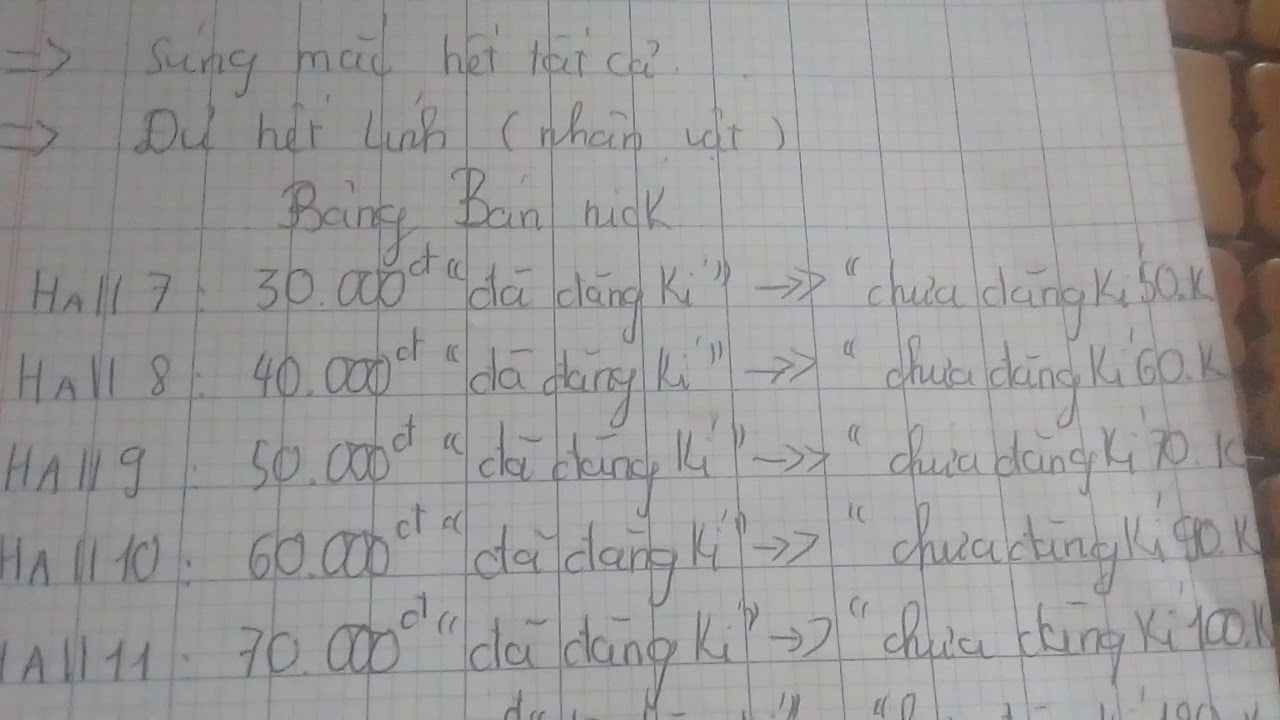 => Súng mãi hết tất cả.
=> Dư hết lính (nhân vật)
Bảng Bán nick
HAll 7: 30.000đ "đã đăng kí" ->> "chưa đăng kí 50.K
HAll 8: 40.000đ "đã đăng kí" ->> "chưa đăng kí 60.K
HAll 9: 50.000đ "đã đăng kí" ->> "chưa đăng kí 70.K
HAll 10: 60.000đ "đã đăng kí" ->> "chưa đăng kí 90.K
HAll 11: 70.000đ "đã đăng kí" ->> "chưa đăng kí 100.K